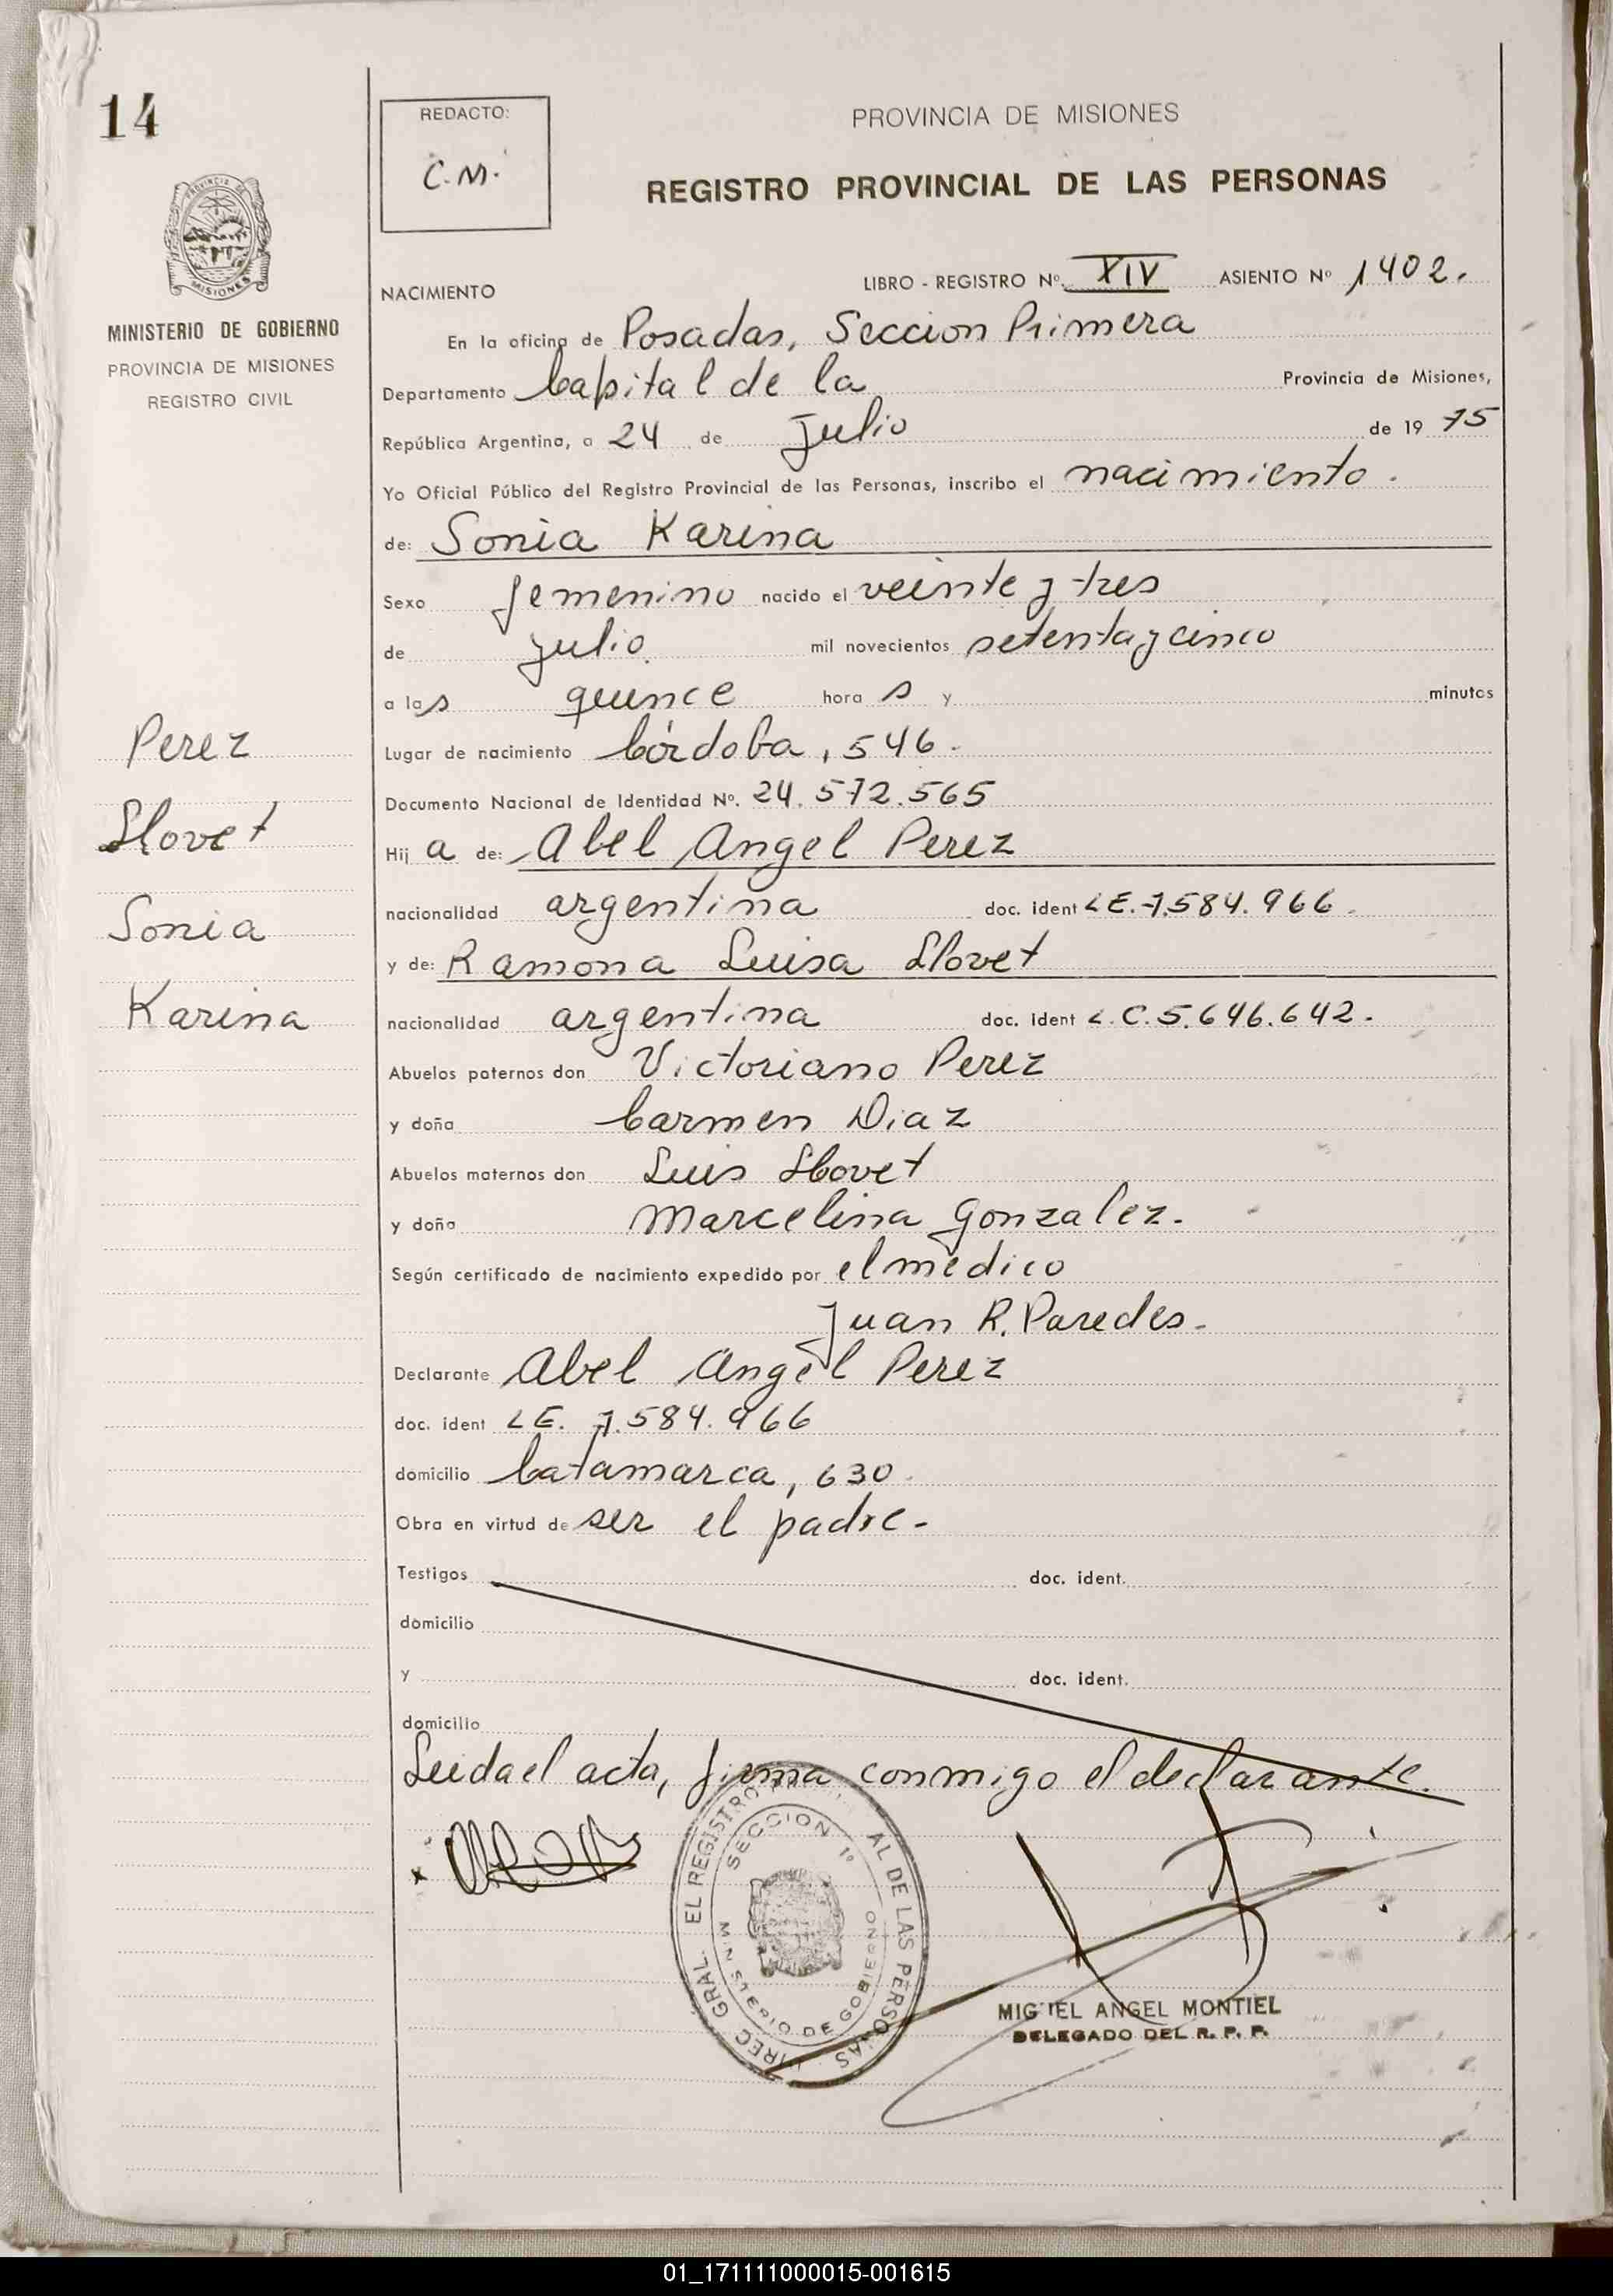 14
REDACTO:
C.M.
PROVINCIA DE MISIONES
REGISTRO PROVINCIAL DE LAS PERSONAS
PROVINCIA DE
MISIONES
MINISTERIO DE GOBIERNO
PROVINCIA DE MISIONES
REGISTRO CIVIL
LIBRO - REGISTRO Nº. XIV ASIENTO Nº 1402.
NACIMIENTO
En la oficina de Posadas, Seccion Primera
Departamento Capital de la Provincia de Misiones,
República Argentina, a 24 de Julio de 19 75
Yo Oficial Público del Registro Provincial de las Personas, inscribo el nacimiento.
de: Sonia Karina
Sexo femenino nacido el veinte y tres
de julio. mil novecientos setenta y cinco
a las quince hora s y minutos
Lugar de nacimiento Córdoba, 546.
Documento Nacional de Identidad Nº. 24.572.565
Hij a de: Abel Angel Perez
nacionalidad argentina doc. ident L.E. 7.584.966.
y de: Ramona Luisa Llovet
nacionalidad argentina doc. ident L.C. 5.646.642.
Abuelos paternos don Victoriano Perez
y doña Carmen Diaz
Abuelos maternos don Luis Llovet
y doña Marcelina Gonzalez.
Según certificado de nacimiento expedido por el médico
Juan R. Paredes.
Declarante Abel Angel Perez
doc. ident L.E. 7.584.966
domicilio Catamarca, 630.
Obra en virtud de ser el padre.
Testigos doc. ident.
domicilio
y doc. ident.
domicilio
Leida el acta, firma conmigo el declarante.
Perez
Llovet
Sonia
Karina
DIREC GRAL. EL REGISTRO AL DE LAS PERSONAS
SECCION 1º
MINISTERIO DE GOBIERNO
MIGUEL ANGEL MONTIEL
DELEGADO DEL R. P. P.
01_171111000015-001615